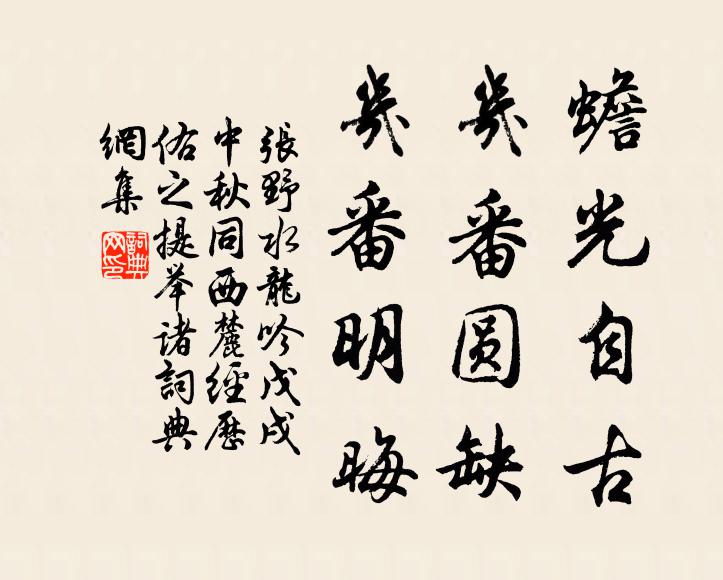 蟾光自古
幾番圆缺
幾番明晦
張野水龍吟戊戌
中秋同西麓經歷
佑之提举诸詞典
網集
詞典
网印